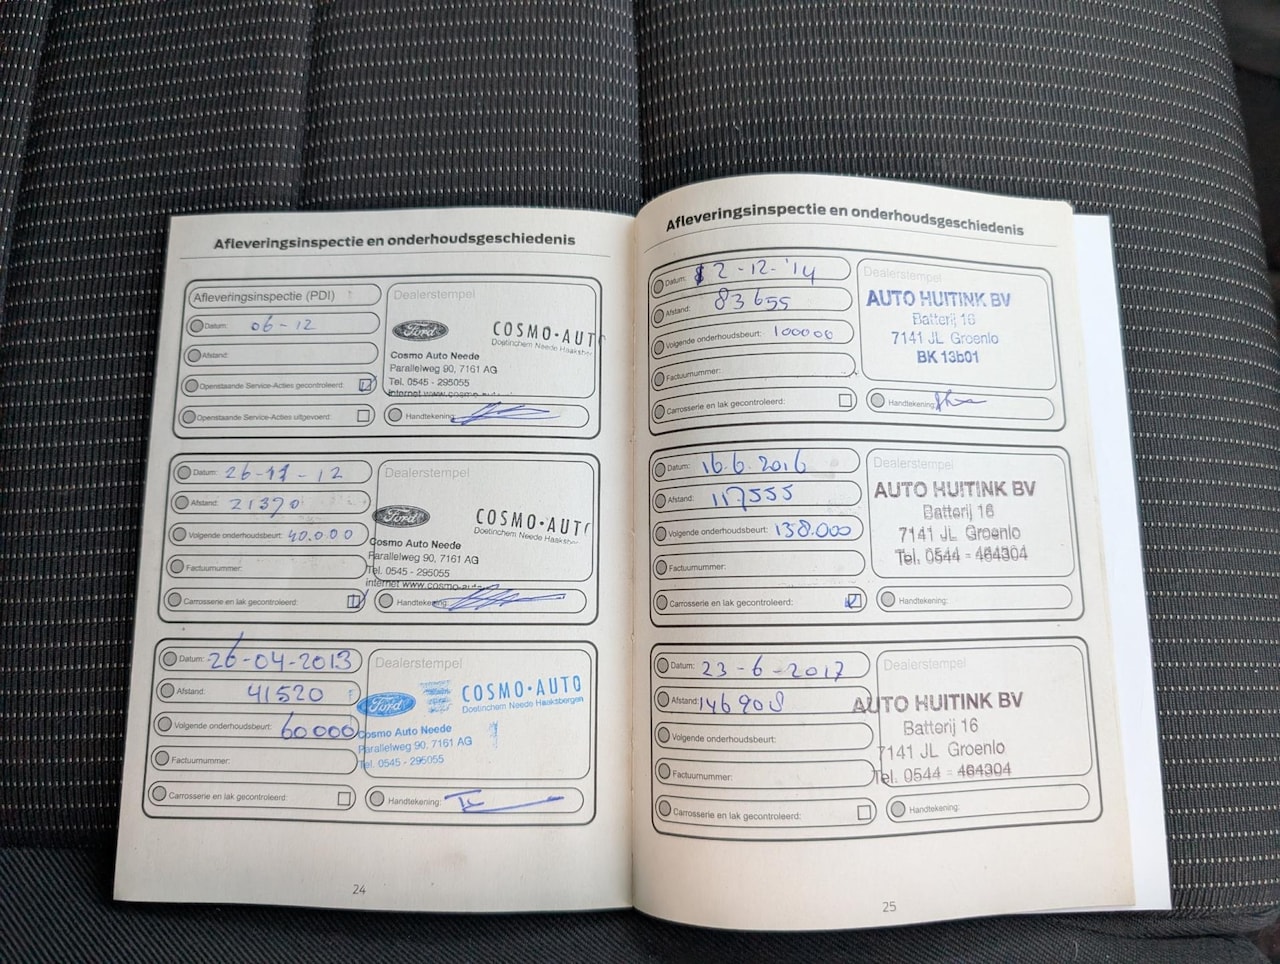 Afleveringsinspectie en onderhoudsgeschiedenis
Afleveringsinspectie (PDI)
Datum: 06-12
Afstand:
Openstaande Service-Acties gecontroleerd:
Openstaande Service-Acties uitgevoerd:
Dealerstempel
Ford COSMO•AUT
Doetinchem Neede Haaksber
Cosmo Auto Neede
Parallelweg 90, 7161 AG
Tel. 0545 - 295055
internet www.cosmo-auto
Handtekening:
Datum: 26-11-12
Afstand: 21370
Volgende onderhoudsbeurt: 40.000
Factuurnummer:
Carrosserie en lak gecontroleerd:
Dealerstempel
Ford COSMO•AUT
Doetinchem Neede Haaksber
Cosmo Auto Neede
Parallelweg 90, 7161 AG
Tel. 0545 - 295055
internet www.cosmo-aut
Handtekening:
Datum: 26-04-2013
Afstand: 41520
Volgende onderhoudsbeurt: 60000
Factuurnummer:
Carrosserie en lak gecontroleerd:
Dealerstempel
Ford COSMO•AUTO
Doetinchem Neede Haaksbergen
Cosmo Auto Neede
Parallelweg 90, 7161 AG
Tel. 0545 - 295055
Handtekening:
24
Afleveringsinspectie en onderhoudsgeschiedenis
Datum: 2-12-'14
Afstand: 83655
Volgende onderhoudsbeurt: 100000
Factuurnummer:
Carrosserie en lak gecontroleerd:
Dealerstempel
AUTO HUITINK BV
Batterij 16
7141 JL Groenlo
BK 13b01
Handtekening:
Datum: 16.6.2016
Afstand: 117555
Volgende onderhoudsbeurt: 138.000
Factuurnummer:
Carrosserie en lak gecontroleerd:
Dealerstempel
AUTO HUITINK BV
Batterij 16
7141 JL Groenlo
Tel. 0544 - 464304
Handtekening:
Datum: 23-6-2017
Afstand: 146908
Volgende onderhoudsbeurt:
Factuurnummer:
Carrosserie en lak gecontroleerd:
Dealerstempel
AUTO HUITINK BV
Batterij 16
7141 JL Groenlo
Tel. 0544 - 464304
Handtekening:
25